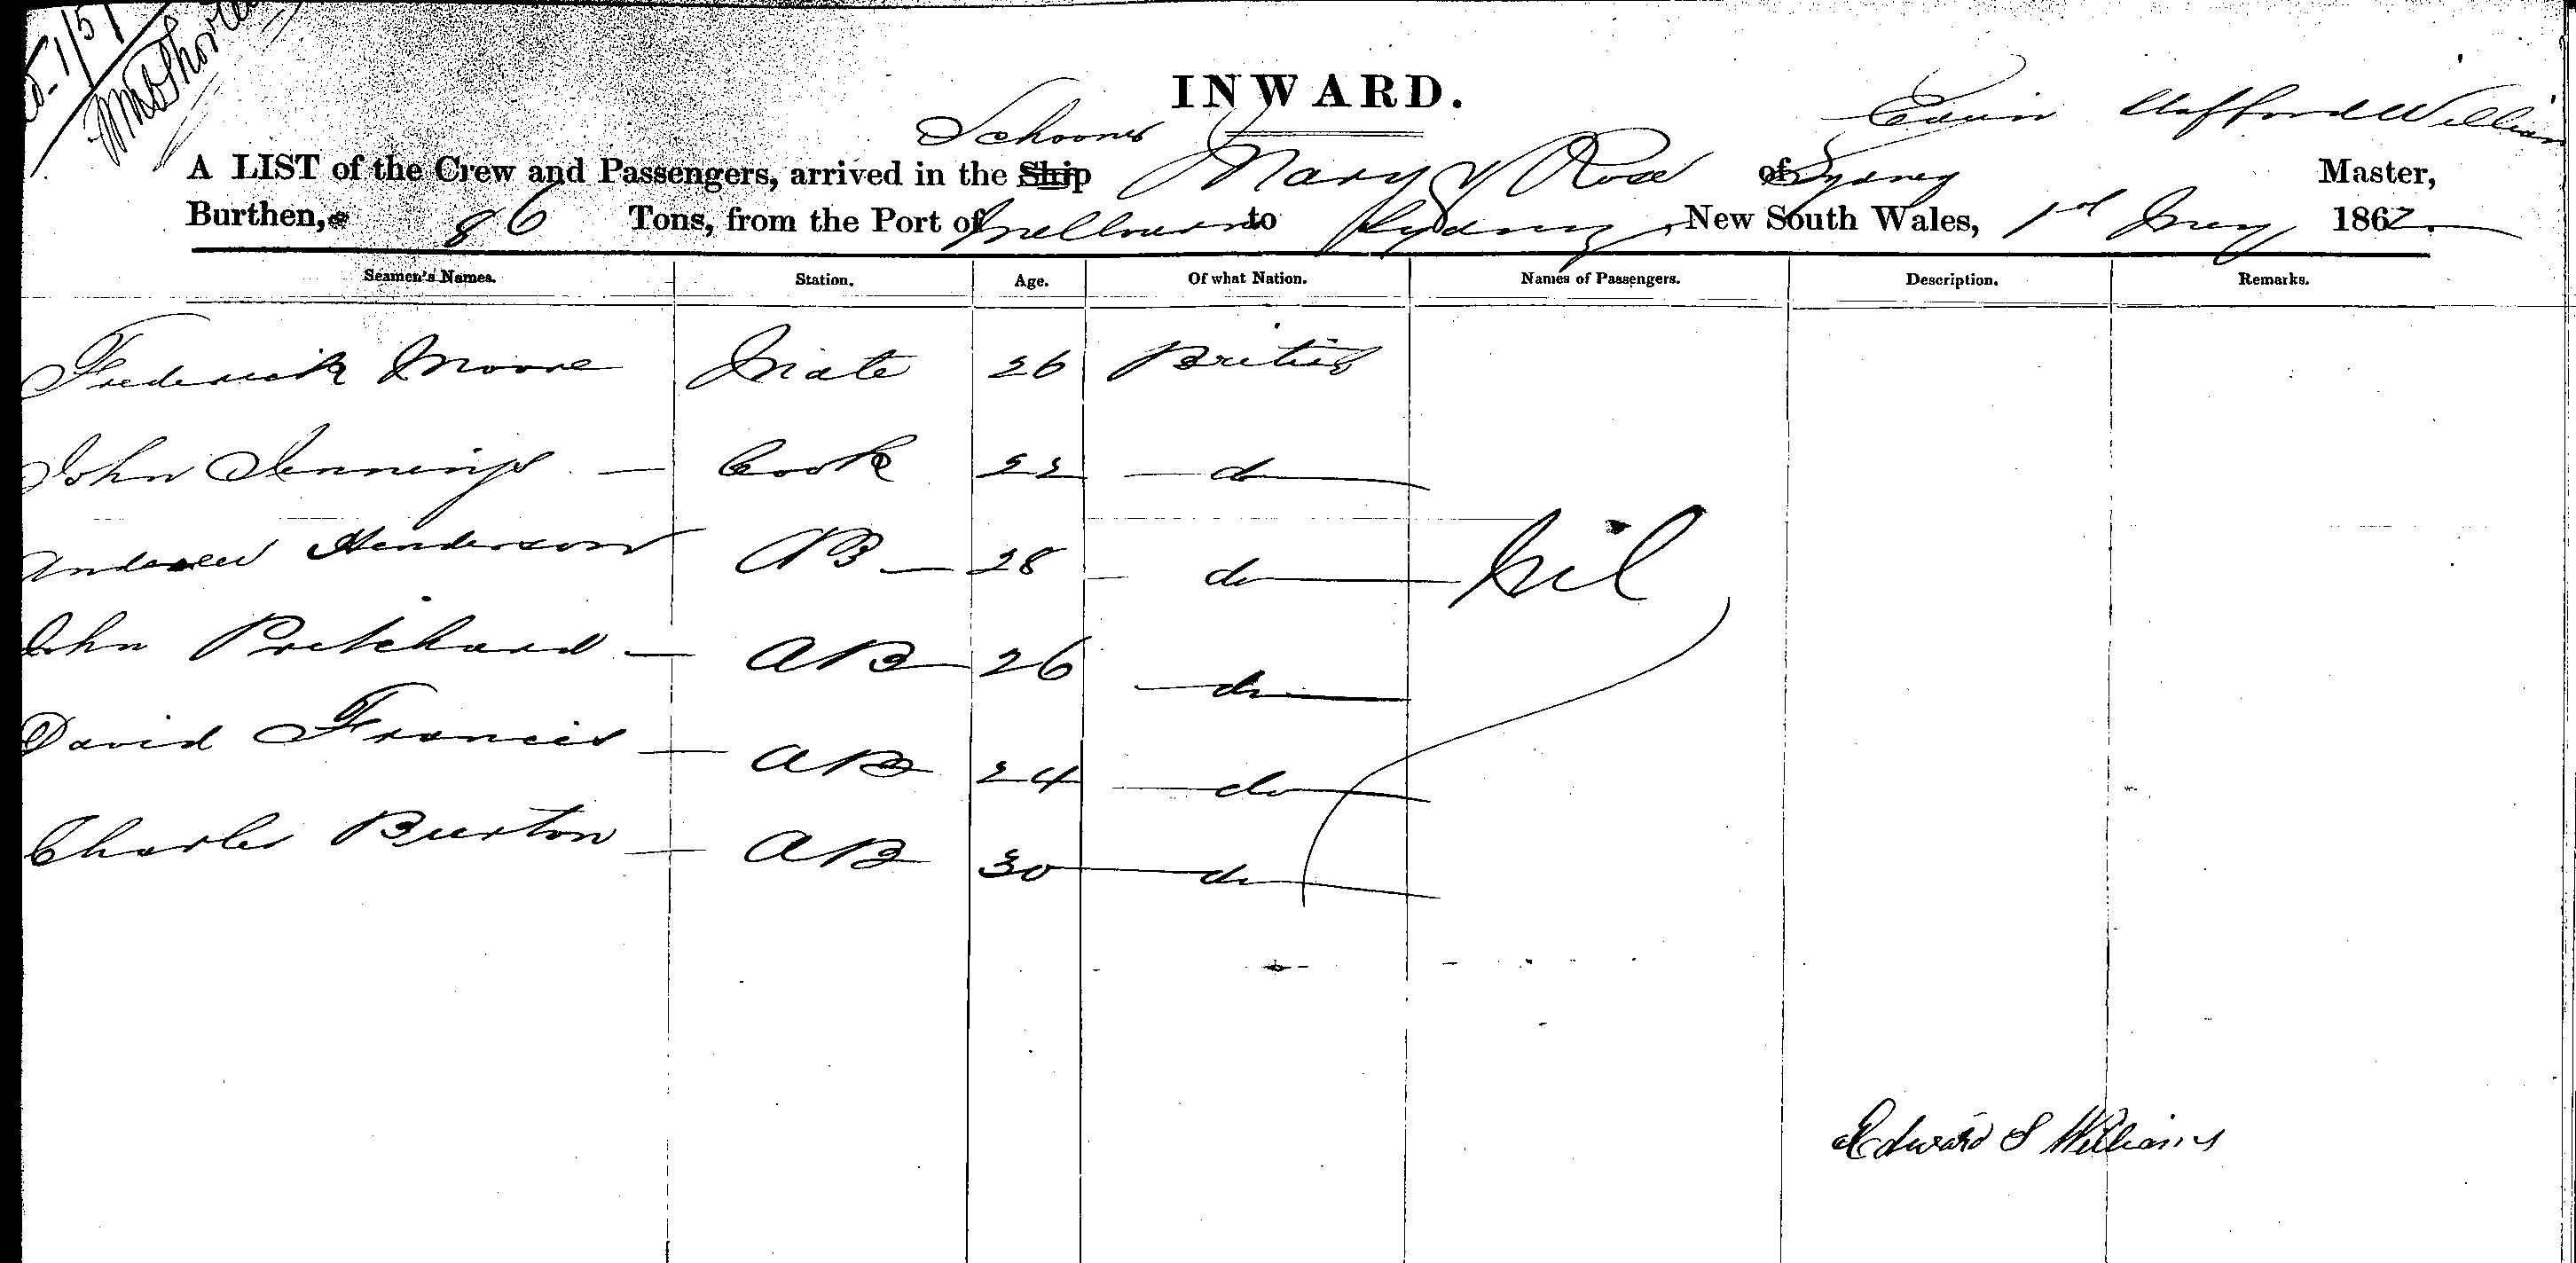 INWARD.
Schooner
A LIST of the Crew and Passengers, arrived in the Ship Mary & Rose of Sydney Williams Master,
Burthen, 86 Tons, from the Port of Melbourne to Sydney, New South Wales, 1st May 1862.
Seamen's Names. Station. Age. Of what Nation. Names of Passengers. Description. Remarks.
Frederick Moore Mate 26 British
John Jennings — Cook 22 — do —
Andrew Henderson AB — 28 — do — Nil
John Pritchard — AB — 26 — do —
David Francis — AB 24 — do —
Charles Burton — AB 30 — do —
Edward S Williams